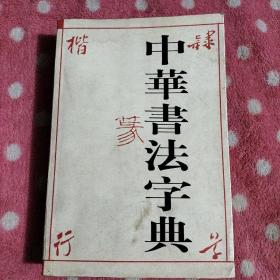 中華書法字典
隸
楷
篆
行
草